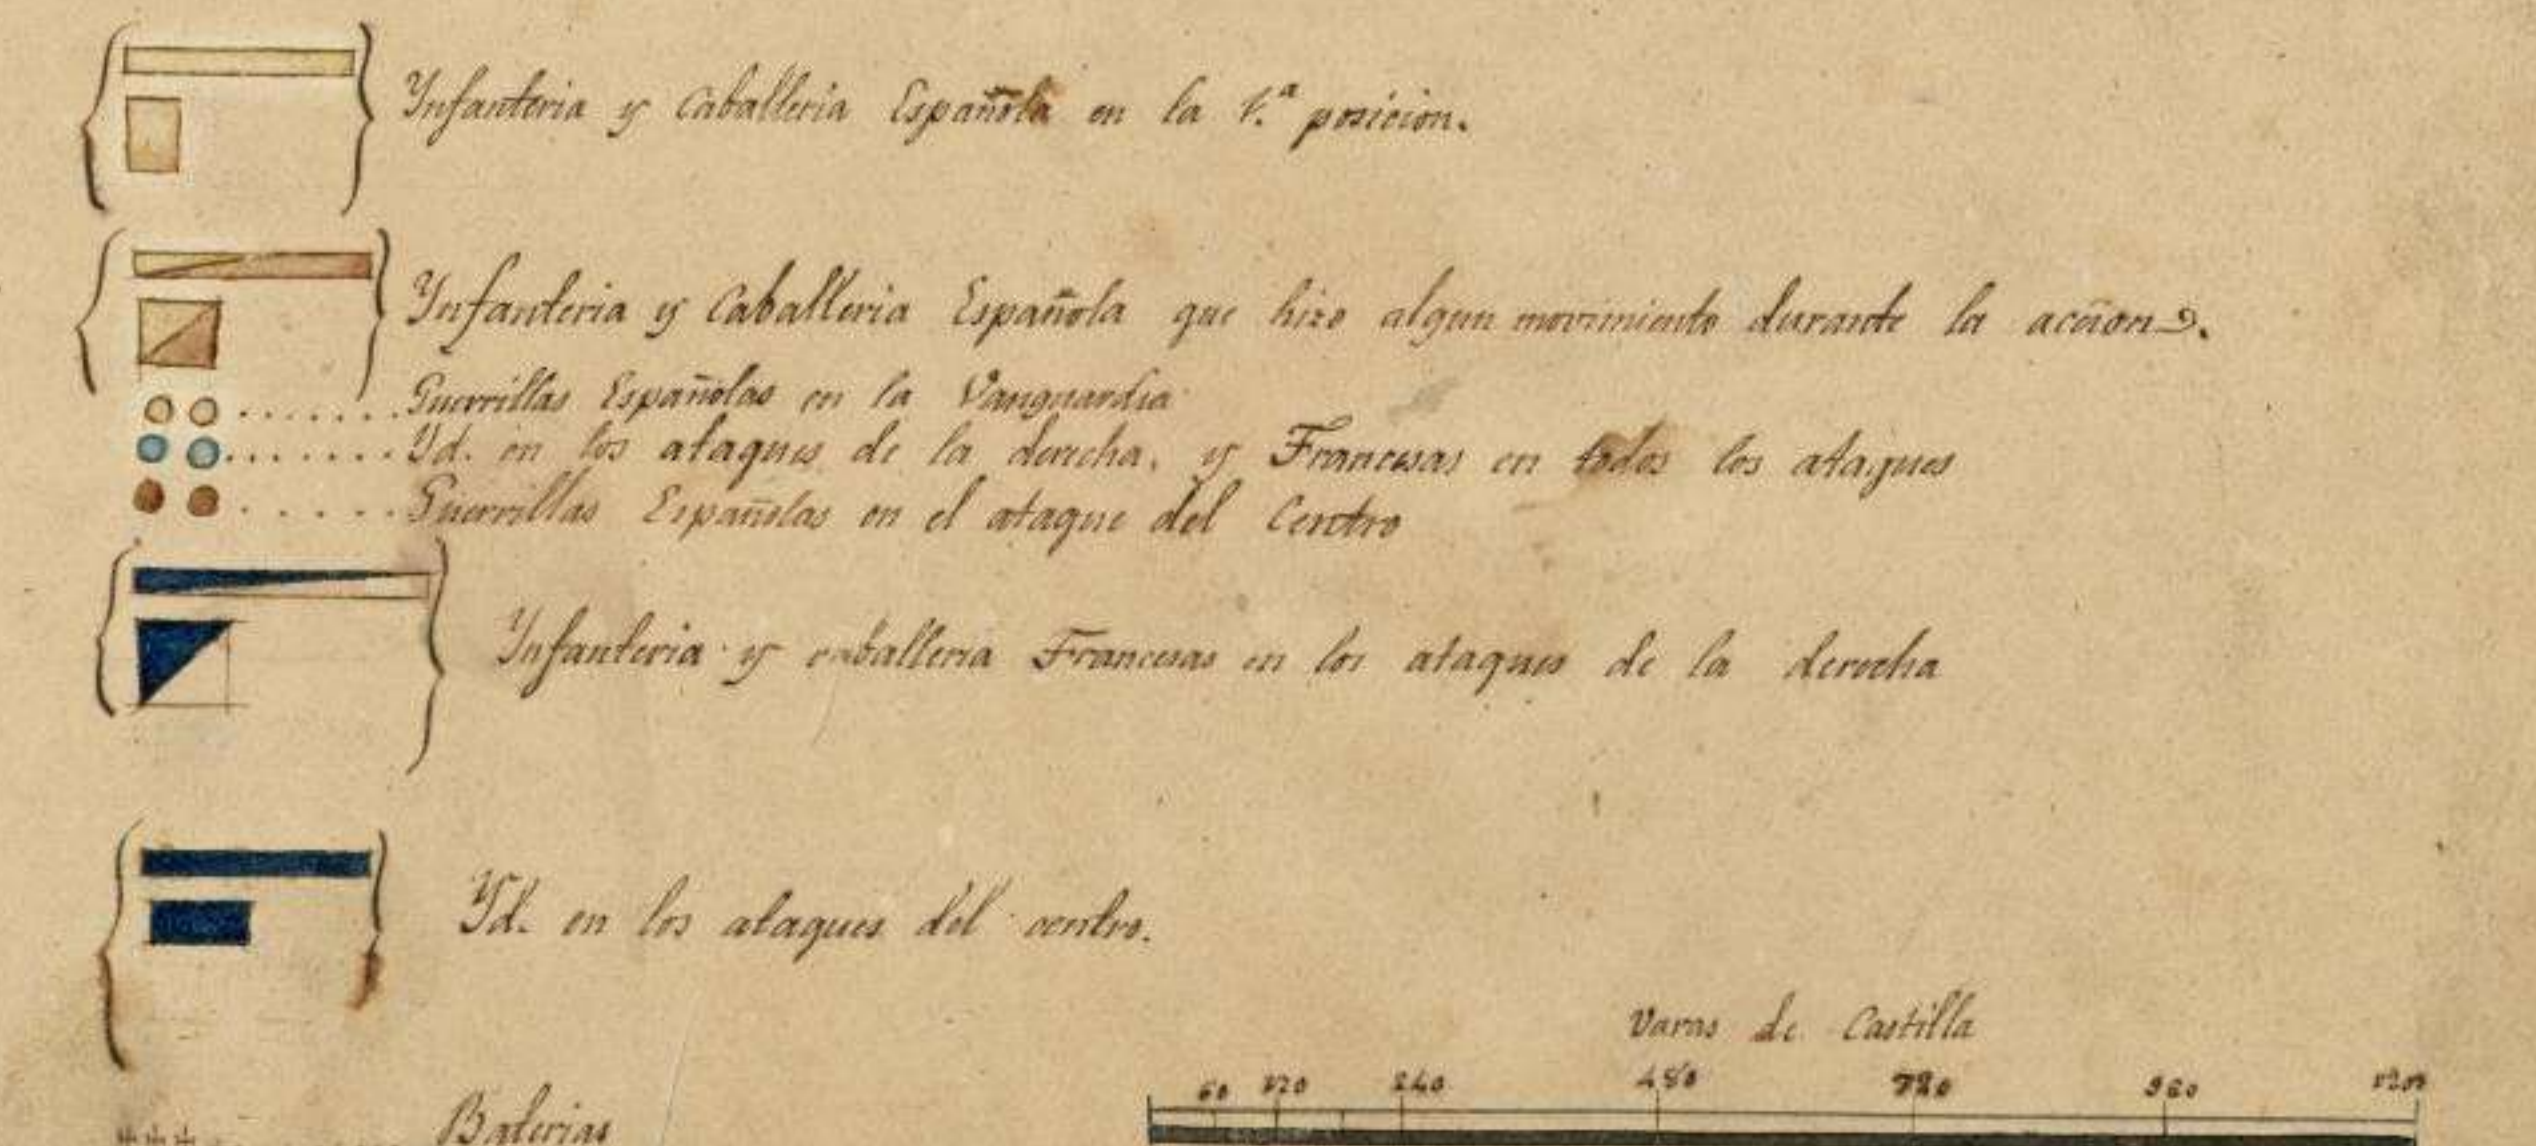 Ynfanteria y Caballeria Española en la 1.ª posicion.
Ynfanteria y Caballeria Española que hizo algun movimiento durante la accion.
Guerrillas Españolas en la Vanguardia
Yd. en los ataques de la derecha, y Francesas en todos los ataques
Guerrillas Españolas en el ataque del Centro
Ynfanteria y caballeria Francesas en los ataques de la derecha
Yd. en los ataques del centro.
Varas de Castilla
60 120 240 480 720 960 1200
Baterias